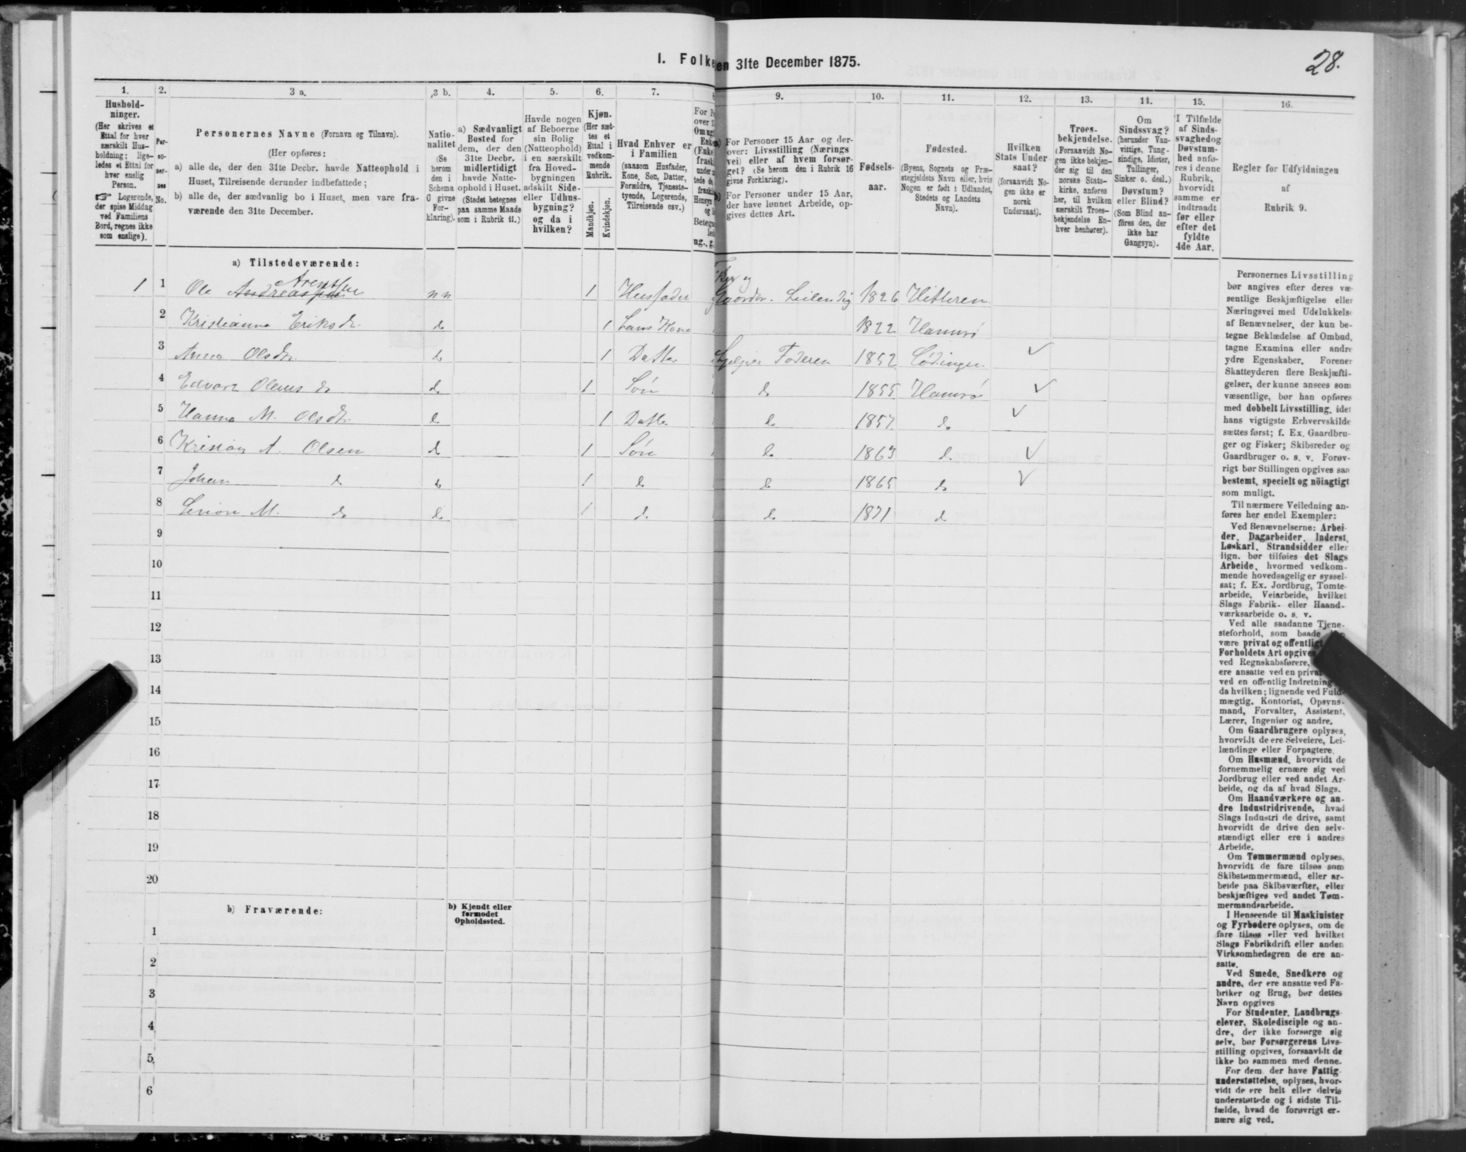 28.
I. Folke
en 31te December 1875.
1. 2. 3 a. 3 b. 4. 5. 6. 7. 9. 10. 11. 12. 13. 11. 15. 16.
Hushold-
ninger.
(Her skrives et
Ettal for hver
særskilt Hus-
holdning; lige-
ledes et Ettal for
hver enslig
Person.
☞ Logerende,
der spise Middag
ved Familiens
Bord, regnes ikke
som enslige).
Per-
so-
ner-
nes
No.
Personernes Navne (Fornavn og Tilnavn).
(Her opføres:
a) alle de, der den 31te Decbr. havde Natteophold i
Huset, Tilreisende derunder indbefattede;
b) alle de, der sædvanlig bo i Huset, men vare fra-
værende den 31te December.
Natio-
nalitet
(Se
herom
den i
Schema
O givne
For-
klaring).
a) Sædvanligt
Bosted for
dem, der den
31te Decbr.
midlertidigt
havde Natte-
ophold i Huset.
(Stedet betegnes
paa samme Maade
som i Rubrik 11.)
Havde nogen
af Beboerne
sin Bolig
(Natteophold)
i en særskilt
fra Hoved-
bygningen
adskilt Side-
eller Udhus-
bygning?
og da i
hvilken?
Kjøn.
(Her sæt-
tes et
Ettal i
vedkom-
mende
Rubrik.
Mandkjøn.
Kvindekjøn.
Hvad Enhver er
i Familien
(saasom Husfader,
Kone, Søn, Datter,
Forældre, Tjeneste-
tyende, Logerende,
Tilreisende osv.)
For Personer 15 Aar og der-
over: Livsstilling (Nærings
vei) eller af hvem forsør-
get? (Se herom den i Rubrik 16
givne Forklaring).
For Personer under 15 Aar,
der have lønnet Arbeide, op-
gives dettes Art.
Fødsels-
aar.
Fødested.
(Byens, Sognets og Præ-
stegjældets Navn eller, hvis
Nogen er født i Udlandet,
Stedets og Landets
Navn).
Hvilken
Stats Under
saat?
(forsaavidt No-
gen ikke er
norsk
Undersaat).
Troes-
bekjendelse.
(Forsaavidt No-
gen ikke bekjen-
der sig til den
norske Stats-
kirke, anføres
her, til hvilken
særskilt Troes-
bekjendelse En-
hver henhører).
Om
Sindssvag?
(herunder Van-
vittige, Tung-
sindige, Idioter,
Tullinger,
Sinker o. desl.)
Døvstum?
eller Blind?
(Som Blind an-
føres den, der
ikke har
Gangsyn).
I Tilfælde
af Sinds-
svaghed og
Døvstum-
hed anfø-
res i denne
Rubrik,
hvorvidt
samme er
indtraadt
før eller
efter det
fyldte
4de Aar.
Regler for Udfyldningen
af
Rubrik 9.
a) Tilstedeværende:
1 1 Ole Andreassen Arentsen nn 1 Husfader Fisker og Gaardbr. Leilendig 1826 Hitteren
2 Kristianna Eriksdr. do 1 hans Kone 1822 Hamrø
3 Anna Olsdtr do 1 Datter hjelper Foderen 1852 Lødingen ✓
4 Edvart Olenus do do 1 Søn do 1855 Hamrø ✓
5 Hanna M. Olsdtr. do 1 Datter do 1857 do ✓
6 Kristian A. Olsen do 1 Søn do 1863 do ✓
7 Johan do do 1 do do 1865 do ✓
8 M. do do 1 do do 1871 do
9
10
11
12
13
14
15
16
17
18
19
20
b) Fraværende:
b) Kjendt eller
formodet
Opholdssted.
1
2
3
4
5
6
Personernes Livsstilling
bør angives efter deres væ-
sentlige Beskjæftigelse eller
Næringsvei med Udelukkelse
af Benævnelser, der kun be-
tegne Beklædelse af Ombud,
tagne Examina eller andre
ydre Egenskaber. Forener
Skatteyderen flere Beskjæfti-
gelser, der kunne ansees som
væsentlige, bør han opføres
med dobbelt Livsstilling, idet
hans vigtigste Erhvervskilde
sættes først; f. Ex. Gaardbru-
ger og Fisker; Skibsreder og
Gaardbruger o. s. v. Forøv-
rigt bør Stillingen opgives saa
bestemt, specielt og nöiagtigt
som muligt.
Til nærmere Veiledning an-
føres her endel Exempler:
Ved Benævnelserne: Arbei-
der, Dagarbeider, Inderst,
Løskarl, Strandsidder eller
lign. bør tilføies det Slags
Arbeide, hvormed vedkom-
mende hovedsagelig er syssel-
sat; f. Ex. Jordbrug, Tomte-
arbeide, Veiarbeide, hvilket
Slags Fabrik- eller Haand-
værksarbeide o. s. v.
Ved alle saadanne Tjene-
steforhold, som baade
være privat og offentligt
Forholdets Art opgives
ved Regnskabsførere,
ere ansatte ved en privat
ved en offentlig Indretning
da hvilken; lignende ved Fuld-
mægtig, Kontorist, Opsyns-
mand, Forvalter, Assistent,
Lærer, Ingeniør og andre.
Om Gaardbrugere oplyses,
hvorvidt de ere Selveiere, Lei-
lændinge eller Forpagtere.
Om Husmænd, hvorvidt de
fornemmelig ernære sig ved
Jordbrug eller ved andet Ar-
beide, og da af hvad Slags.
Om Haandværkere og an-
dre Industridrivende, hvad
Slags Industri de drive, samt
hvorvidt de drive den selv-
stændigt eller ere i andres
Arbeide.
Om Tømmermænd oplyses,
hvorvidt de fare tilsøs som
Skibstømmermænd, eller ar-
beide paa Skibsværfter, eller
beskjæftiges ved andet Tøm-
mermandsarbeide.
I Henseende til Maskinister
og Fyrbødere oplyses, om de
fare tilsøs eller ved hvilket
Slags Fabrikdrift eller anden
Virksomhedsgren de ere an-
satte.
Ved Smede, Snedkere og
andre, der ere ansatte ved Fa-
briker og Brug, bør dettes
Navn opgives
For Studenter, Landbrugs-
elever, Skoledisciple og an-
dre, der ikke forsørge sig
selv, bør Forsørgerens Livs-
stilling opgives, forsaavidt de
ikke bo sammen med denne.
For dem, der have Fattig-
understøttelse, oplyses, hvor-
vidt de ere helt eller delvis
understøttede og i sidste Til-
fælde, hvad de forøvrigt er-
nære sig ved.